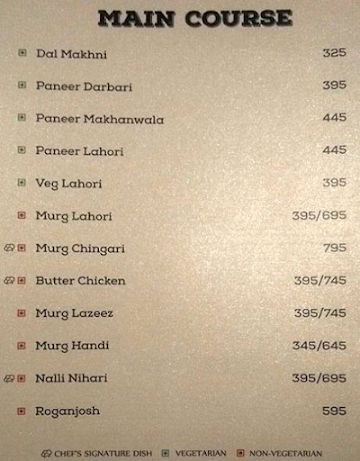 MAIN COURSE
Dal Makhni 325
Paneer Darbari 395
Paneer Makhanwala 445
Paneer Lahori 445
Veg Lahori 395
Murg Lahori 395/695
Murg Chingari 795
Butter Chicken 395/745
Murg Lazeez 395/745
Murg Handi 345/645
Nalli Nihari 395/695
Roganjosh 595
CHEF'S SIGNATURE DISH VEGETARIAN NON-VEGETARIAN